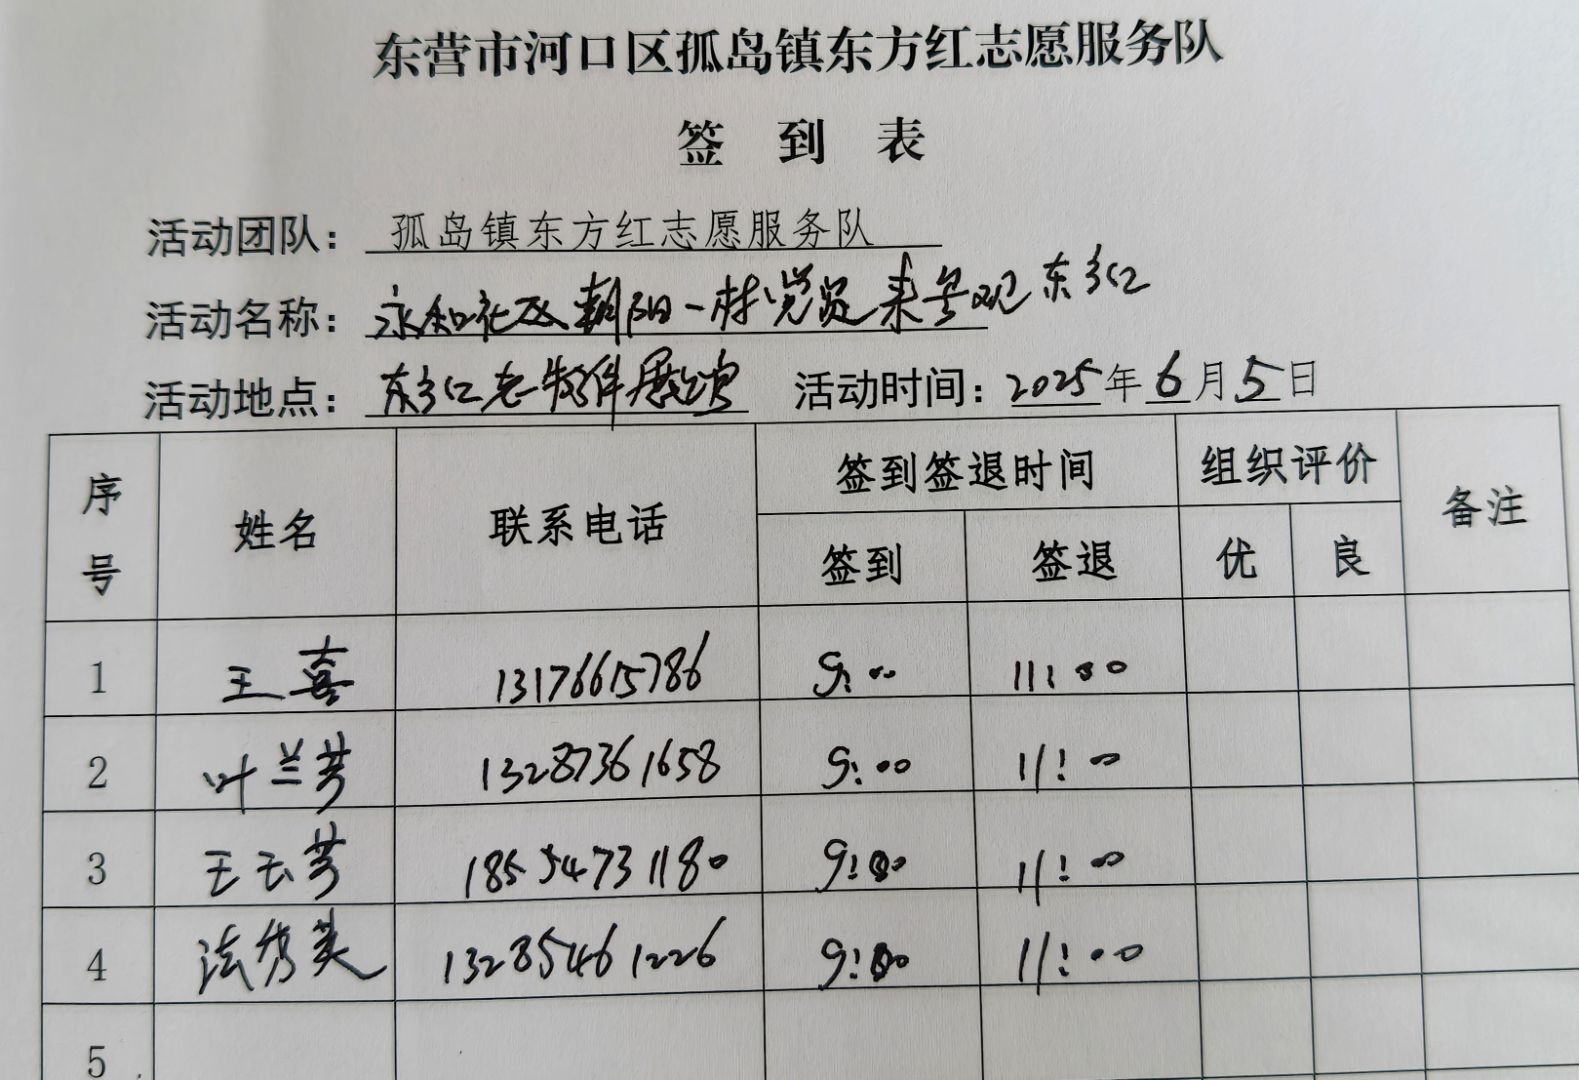 东营市河口区孤岛镇东方红志愿服务队
签 到 表
活动团队：孤岛镇东方红志愿服务队
活动名称：永和社区朝阳一村党员来参观东方红
活动地点：东方红老物件展览馆 活动时间：2025年6月5日
序号 姓名 联系电话 签到签退时间 组织评价 备注
签到 签退 优 良
1 王喜 13176615786 9:00 11:00
2 叶兰芳 13287361658 9:00 11:00
3 王玉芳 18554731180 9:00 11:00
4 法秀英 13285461226 9:00 11:00
5